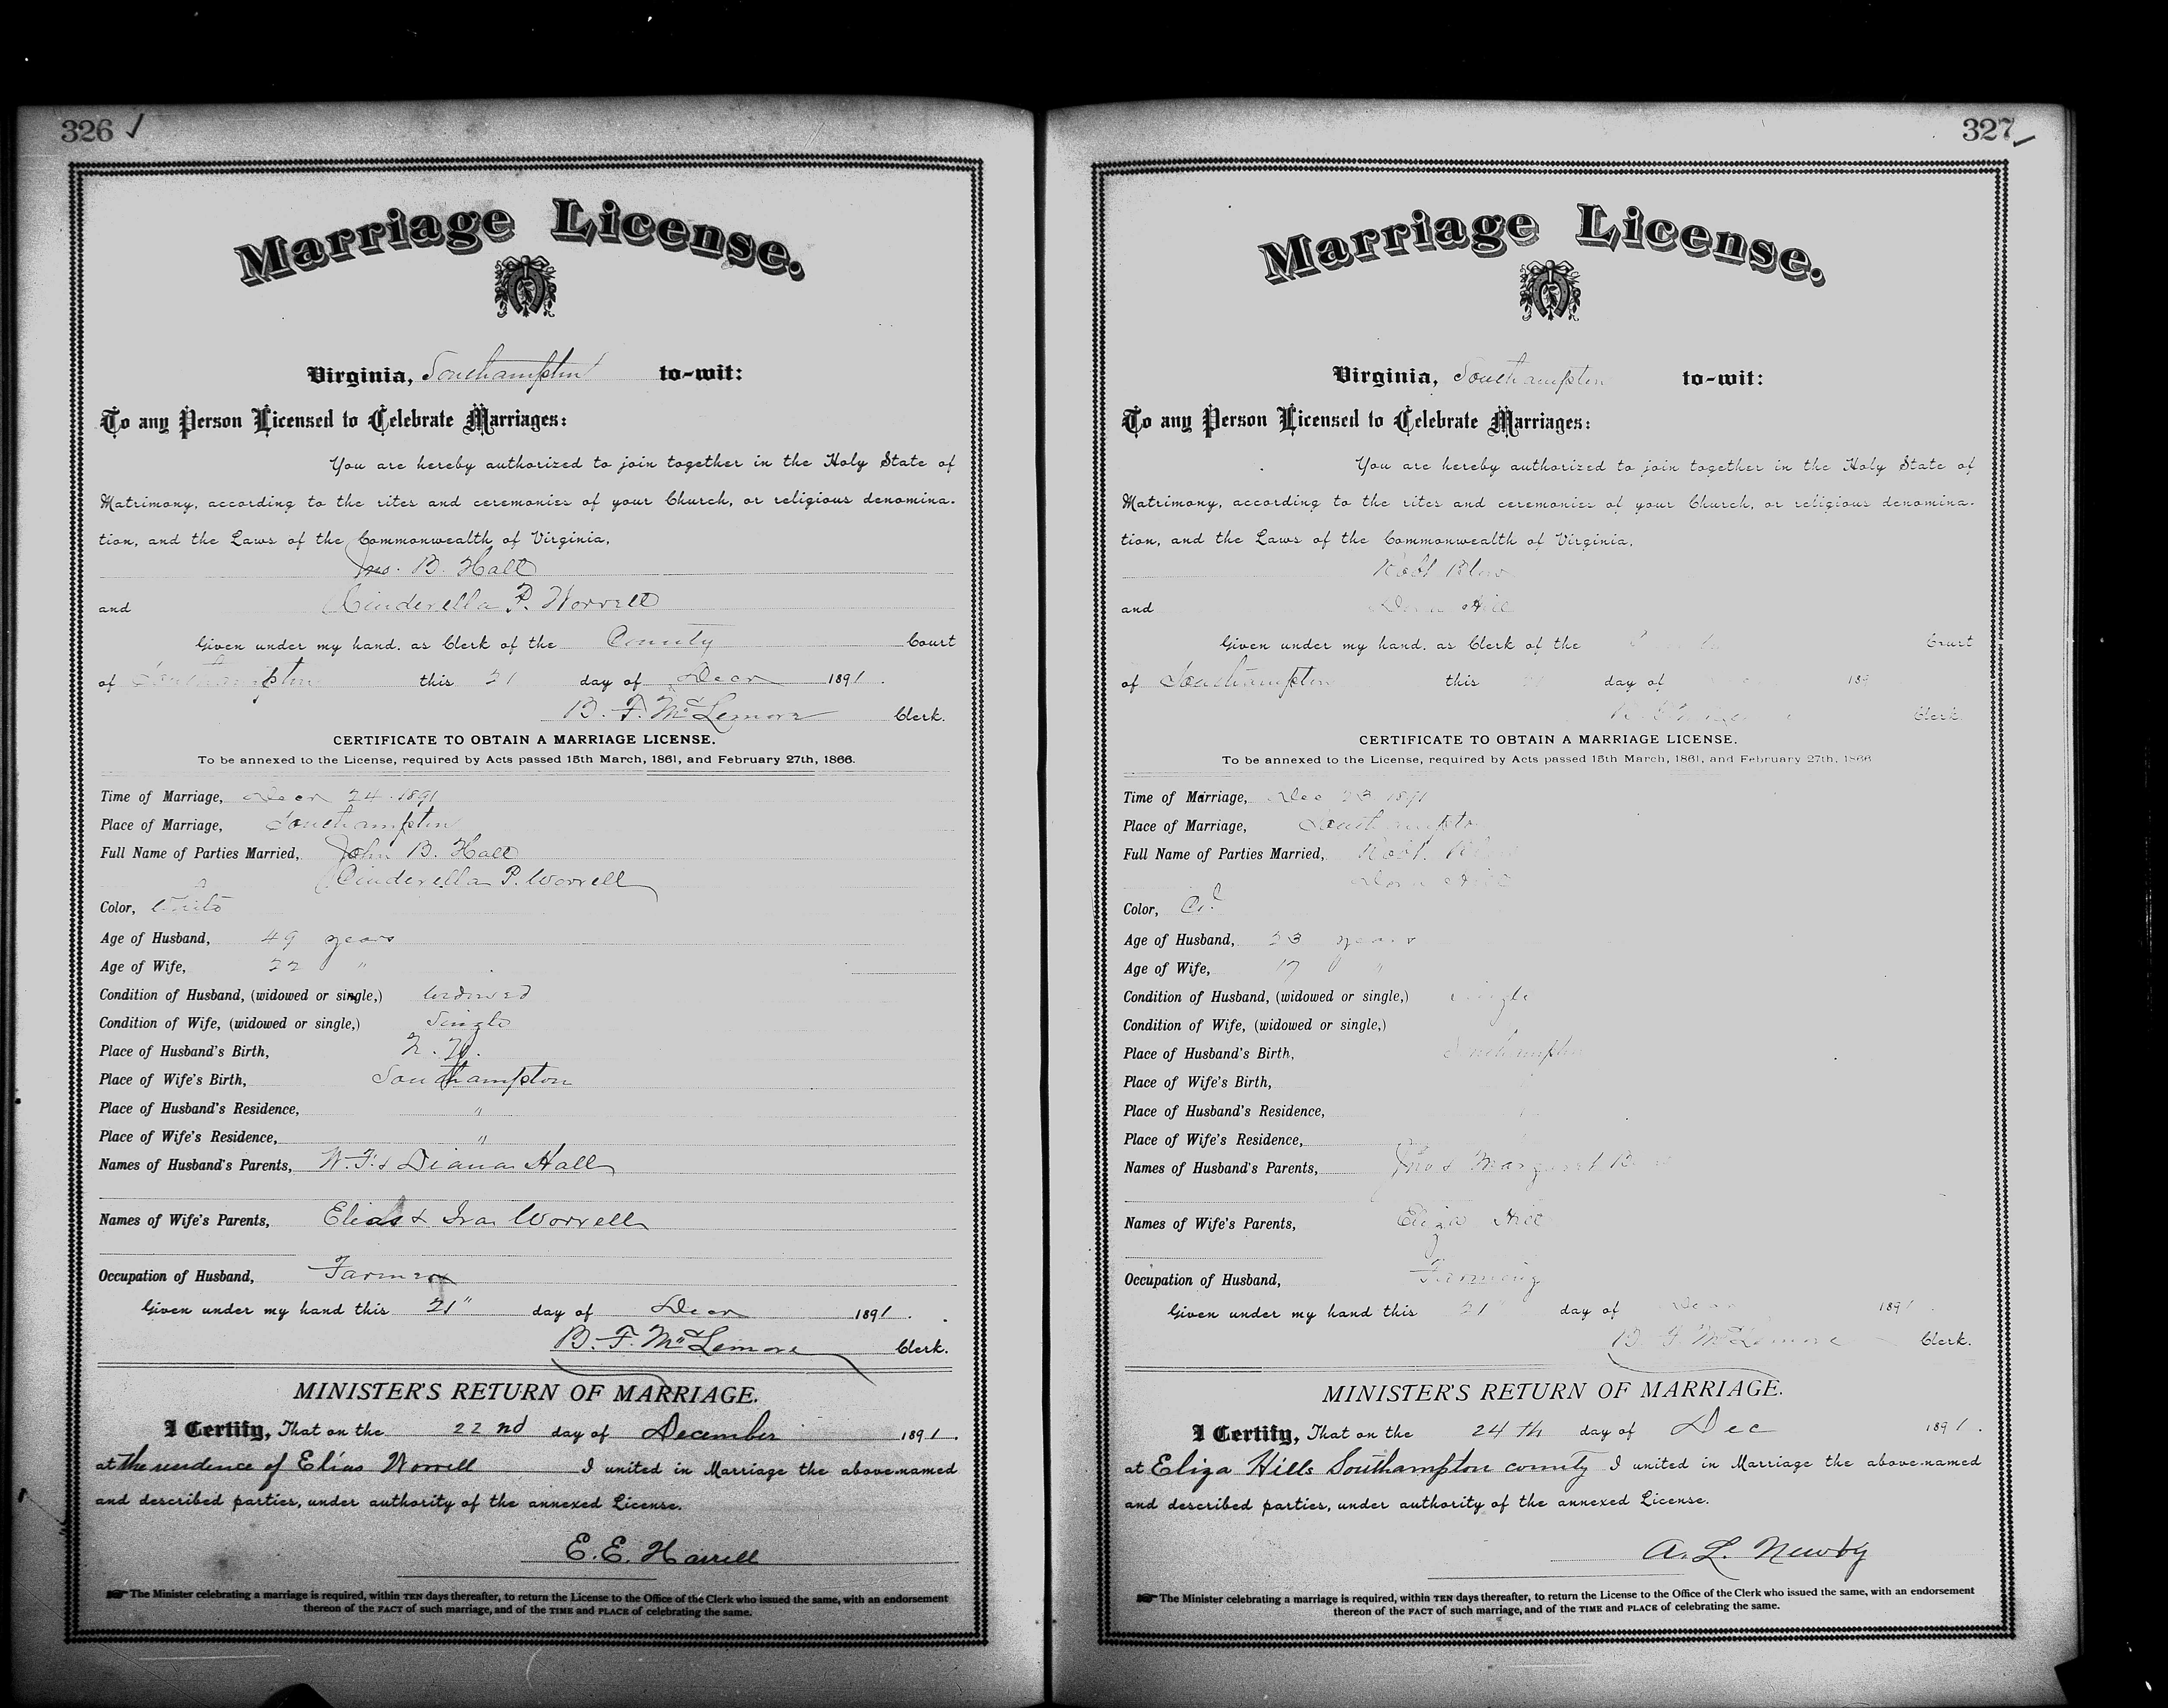 326
Marriage License.
Virginia, Southampton to-wit:
To any Person Licensed to Celebrate Marriages:
You are hereby authorized to join together in the Holy State of
Matrimony, according to the rites and ceremonies of your Church, or religious denomina-
tion, and the Laws of the Commonwealth of Virginia,
Jno. B. Hall
and Cinderella P. Worrell
Given under my hand, as Clerk of the County Court
of Southampton this 21 day of Decr 1891.
B. F. McLemore Clerk.
CERTIFICATE TO OBTAIN A MARRIAGE LICENSE.
To be annexed to the License, required by Acts passed 15th March, 1861, and February 27th, 1866.
Time of Marriage, Decr 24 1891
Place of Marriage, Southampton
Full Name of Parties Married, John B. Hall
Cinderella P. Worrell
Color, White
Age of Husband, 49 years
Age of Wife, 22 "
Condition of Husband, (widowed or single,) widowed
Condition of Wife, (widowed or single,) Single
Place of Husband's Birth, N.
Place of Wife's Birth, Southampton
Place of Husband's Residence, "
Place of Wife's Residence, "
Names of Husband's Parents, W. F. & Diana Hall
Names of Wife's Parents, Elias & Ira Worrell
Occupation of Husband, Farmer
Given under my hand this 21" day of Decr 1891.
B. F. McLemore Clerk.
MINISTER'S RETURN OF MARRIAGE.
I Certify, That on the 22nd day of December 1891.
at the residence of Elias Worrell I united in Marriage the above-named
and described parties, under authority of the annexed License.
E. E. Harrell
The Minister celebrating a marriage is required, within TEN days thereafter, to return the License to the Office of the Clerk who issued the same, with an endorsement
thereon of the FACT of such marriage, and of the TIME and PLACE of celebrating the same.
327
Marriage License.
Virginia, Southampton to-wit:
To any Person Licensed to Celebrate Marriages:
You are hereby authorized to join together in the Holy State of
Matrimony, according to the rites and ceremonies of your Church, or religious denomina-
tion, and the Laws of the Commonwealth of Virginia,
Robt Blow
and Dora Hill
Given under my hand, as Clerk of the Court
of Southampton this 21 day of 189
Clerk.
CERTIFICATE TO OBTAIN A MARRIAGE LICENSE.
To be annexed to the License, required by Acts passed 15th March, 1861, and February 27th, 1866
Time of Marriage, Dec 23 1891
Place of Marriage, Southampton
Full Name of Parties Married, Robt. Blow
Dora Hill
Color, Cd
Age of Husband, 23 years
Age of Wife, 17 "
Condition of Husband, (widowed or single,) single
Condition of Wife, (widowed or single,)
Place of Husband's Birth, Southampton
Place of Wife's Birth,
Place of Husband's Residence,
Place of Wife's Residence,
Names of Husband's Parents, Jno & Margaret
Names of Wife's Parents, Eliza Hill
Occupation of Husband, Farming
Given under my hand this 21" day of Decr 1891.
B. F. McLemore Clerk.
MINISTER'S RETURN OF MARRIAGE.
I Certify, That on the 24th day of Dec 1891.
at Eliza Hills Southampton county I united in Marriage the above-named
and described parties, under authority of the annexed License.
A. L. Newby
The Minister celebrating a marriage is required, within TEN days thereafter, to return the License to the Office of the Clerk who issued the same, with an endorsement
thereon of the FACT of such marriage, and of the TIME and PLACE of celebrating the same.